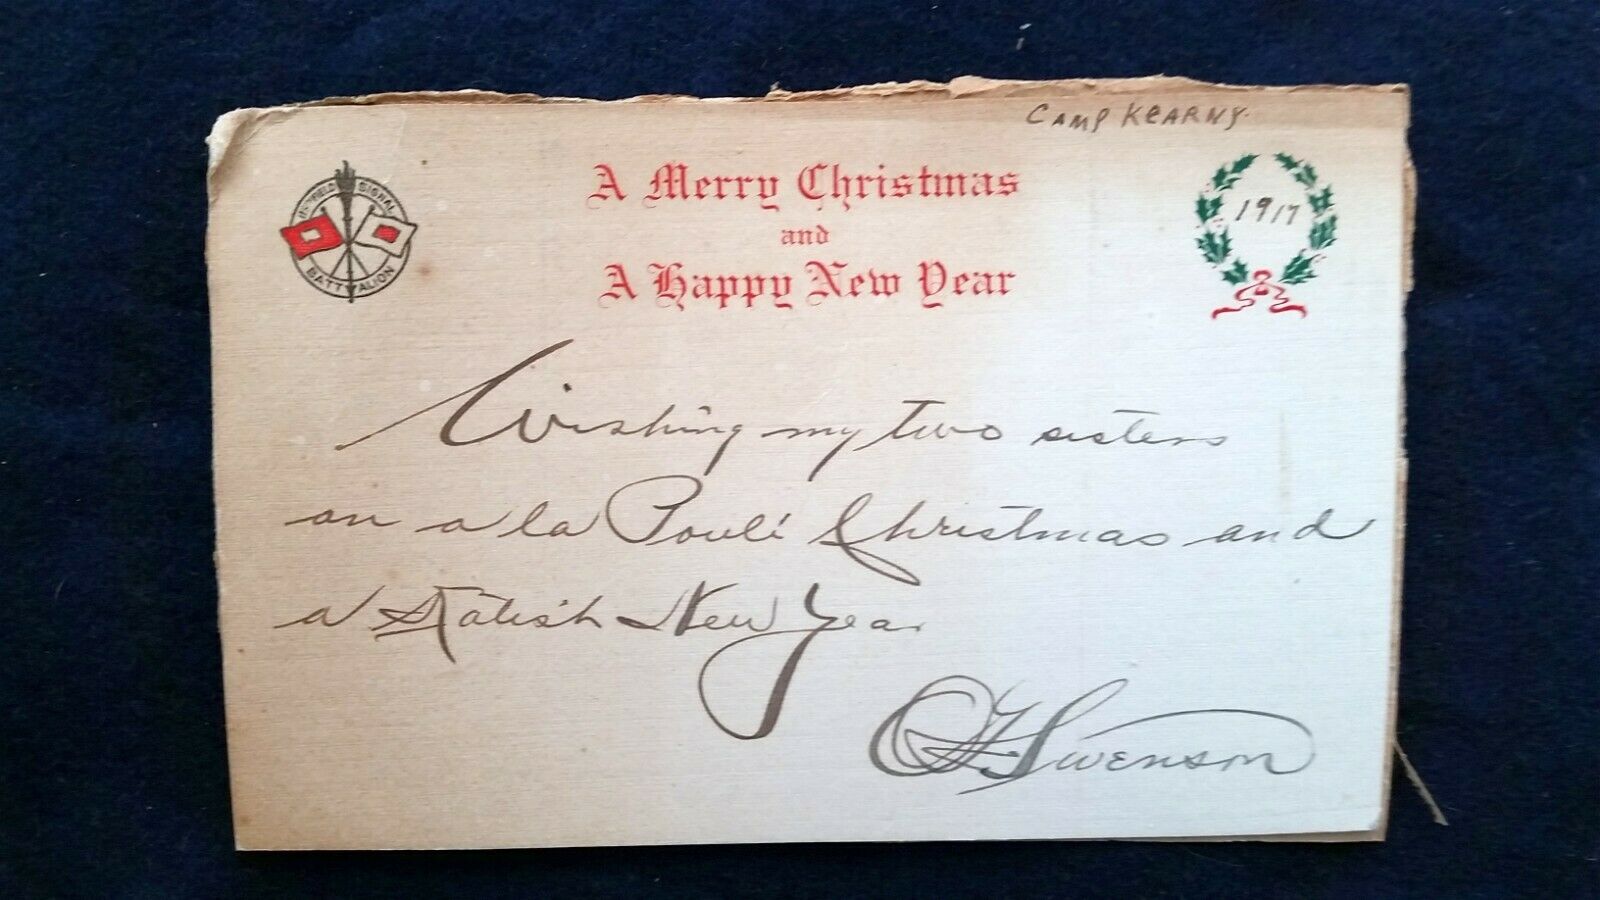 CAMP KEARNY.
FIELD SIGNAL
BATTALION
A Merry Christmas
and
A Happy New Year
1917
Wishing my two sisters
an a la Pouli Christmas and
a New Year
Swenson